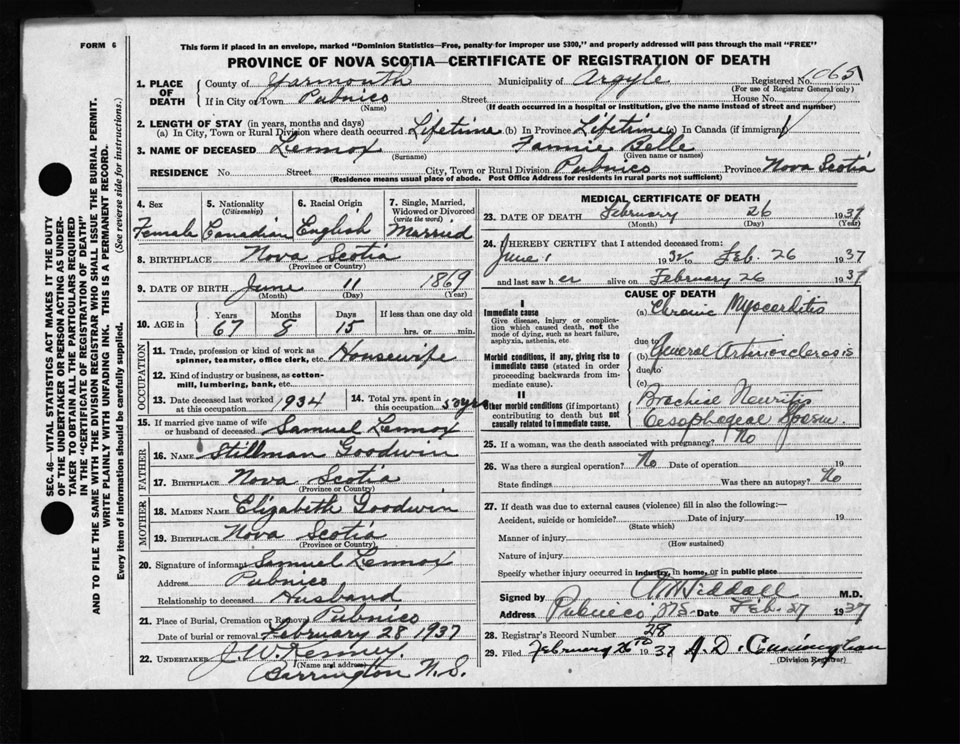 FORM 6
This form if placed in an envelope, marked "Dominion Statistics—Free, penalty for improper use $300," and properly addressed will pass through the mail "FREE"
PROVINCE OF NOVA SCOTIA—CERTIFICATE OF REGISTRATION OF DEATH
1. PLACE OF DEATH County of Yarmouth Municipality of Argyle Registered No. 1065
(For use of Registrar General only)
If in City or Town Pubnico Street House No.
(Name) (If death occurred in a hospital or institution, give the name instead of street and number)
2. LENGTH OF STAY (in years, months and days)
(a) In City, Town or Rural Division where death occurred Lifetime (b) In Province Lifetime (c) In Canada (if immigrant)
3. NAME OF DECEASED Lennox Fannie Belle
(Surname) (Given name or names)
RESIDENCE No. Street City, Town or Rural Division Pubnico Province Nova Scotia
(Residence means usual place of abode. Post Office Address for residents in rural parts not sufficient)
4. Sex 5. Nationality (Citizenship) 6. Racial Origin 7. Single, Married, Widowed or Divorced (write the word)
Female Canadian English Married
8. BIRTHPLACE Nova Scotia
(Province or Country)
9. DATE OF BIRTH June 11 1869
(Month) (Day) (Year)
10. AGE in Years Months Days If less than one day old
67 8 15 hrs. or min.
OCCUPATION
11. Trade, profession or kind of work as spinner, teamster, office clerk, etc. Housewife
12. Kind of industry or business, as cotton-mill, lumbering, bank, etc.
13. Date deceased last worked at this occupation 1934 14. Total yrs. spent in this occupation 50 yrs
15. If married give name of wife or husband of deceased Samuel Lennox
FATHER
16. NAME Stillman Goodwin
17. BIRTHPLACE Nova Scotia
(Province or Country)
MOTHER
18. MAIDEN NAME Elizabeth Goodwin
19. BIRTHPLACE Nova Scotia
(Province or Country)
20. Signature of informant Samuel Lennox
Address Pubnico
Relationship to deceased Husband
21. Place of Burial, Cremation or Removal Pubnico
Date of burial or removal February 28 1937
22. UNDERTAKER J. W. Kenney.
(Name and address)
Barrington N. S.
MEDICAL CERTIFICATE OF DEATH
23. DATE OF DEATH February 26 1937
(Month) (Day) (Year)
24. I HEREBY CERTIFY that I attended deceased from:
June 1 193 to Feb. 26 1937
and last saw her alive on February 26 1937
CAUSE OF DEATH
I
Immediate cause (a) Chronic Myocarditis
Give disease, injury or complication which caused death, not the mode of dying, such as heart failure, asphyxia, asthenia, etc.
due to
Morbid conditions, if any, giving rise to immediate cause (stated in order proceeding backwards from immediate cause). (b) General Arteriosclerosis
due to
(c)
II
Other morbid conditions (if important) contributing to death but not causally related to immediate cause. Brachial Neuritis
Oesophageal Spasm.
25. If a woman, was the death associated with pregnancy? No
26. Was there a surgical operation? No Date of operation 19
State findings Was there an autopsy? No
27. If death was due to external causes (violence) fill in also the following:—
Accident, suicide or homicide? Date of injury 19
(State which)
Manner of injury
(How sustained)
Nature of injury
Specify whether injury occurred in industry, in home, or in public place
Signed by Siddall M.D.
Address Pubnico, N.S. Date Feb. 27 1937
28. Registrar's Record Number 28
29. Filed February 26th 1937 A. D. Cunningham
(Division Registrar)
SEC. 46—VITAL STATISTICS ACT MAKES IT THE DUTY
OF THE UNDERTAKER OR PERSON ACTING AS UNDER-
TAKER TO OBTAIN ALL THE PARTICULARS REQUIRED
IN THE "CERTIFICATE OF REGISTRATION OF DEATH"
AND TO FILE THE SAME WITH THE DIVISION REGISTRAR WHO SHALL ISSUE THE BURIAL PERMIT.
WRITE PLAINLY WITH UNFADING INK. THIS IS A PERMANENT RECORD.
Every item of information should be carefully supplied. (See reverse side for instructions.)